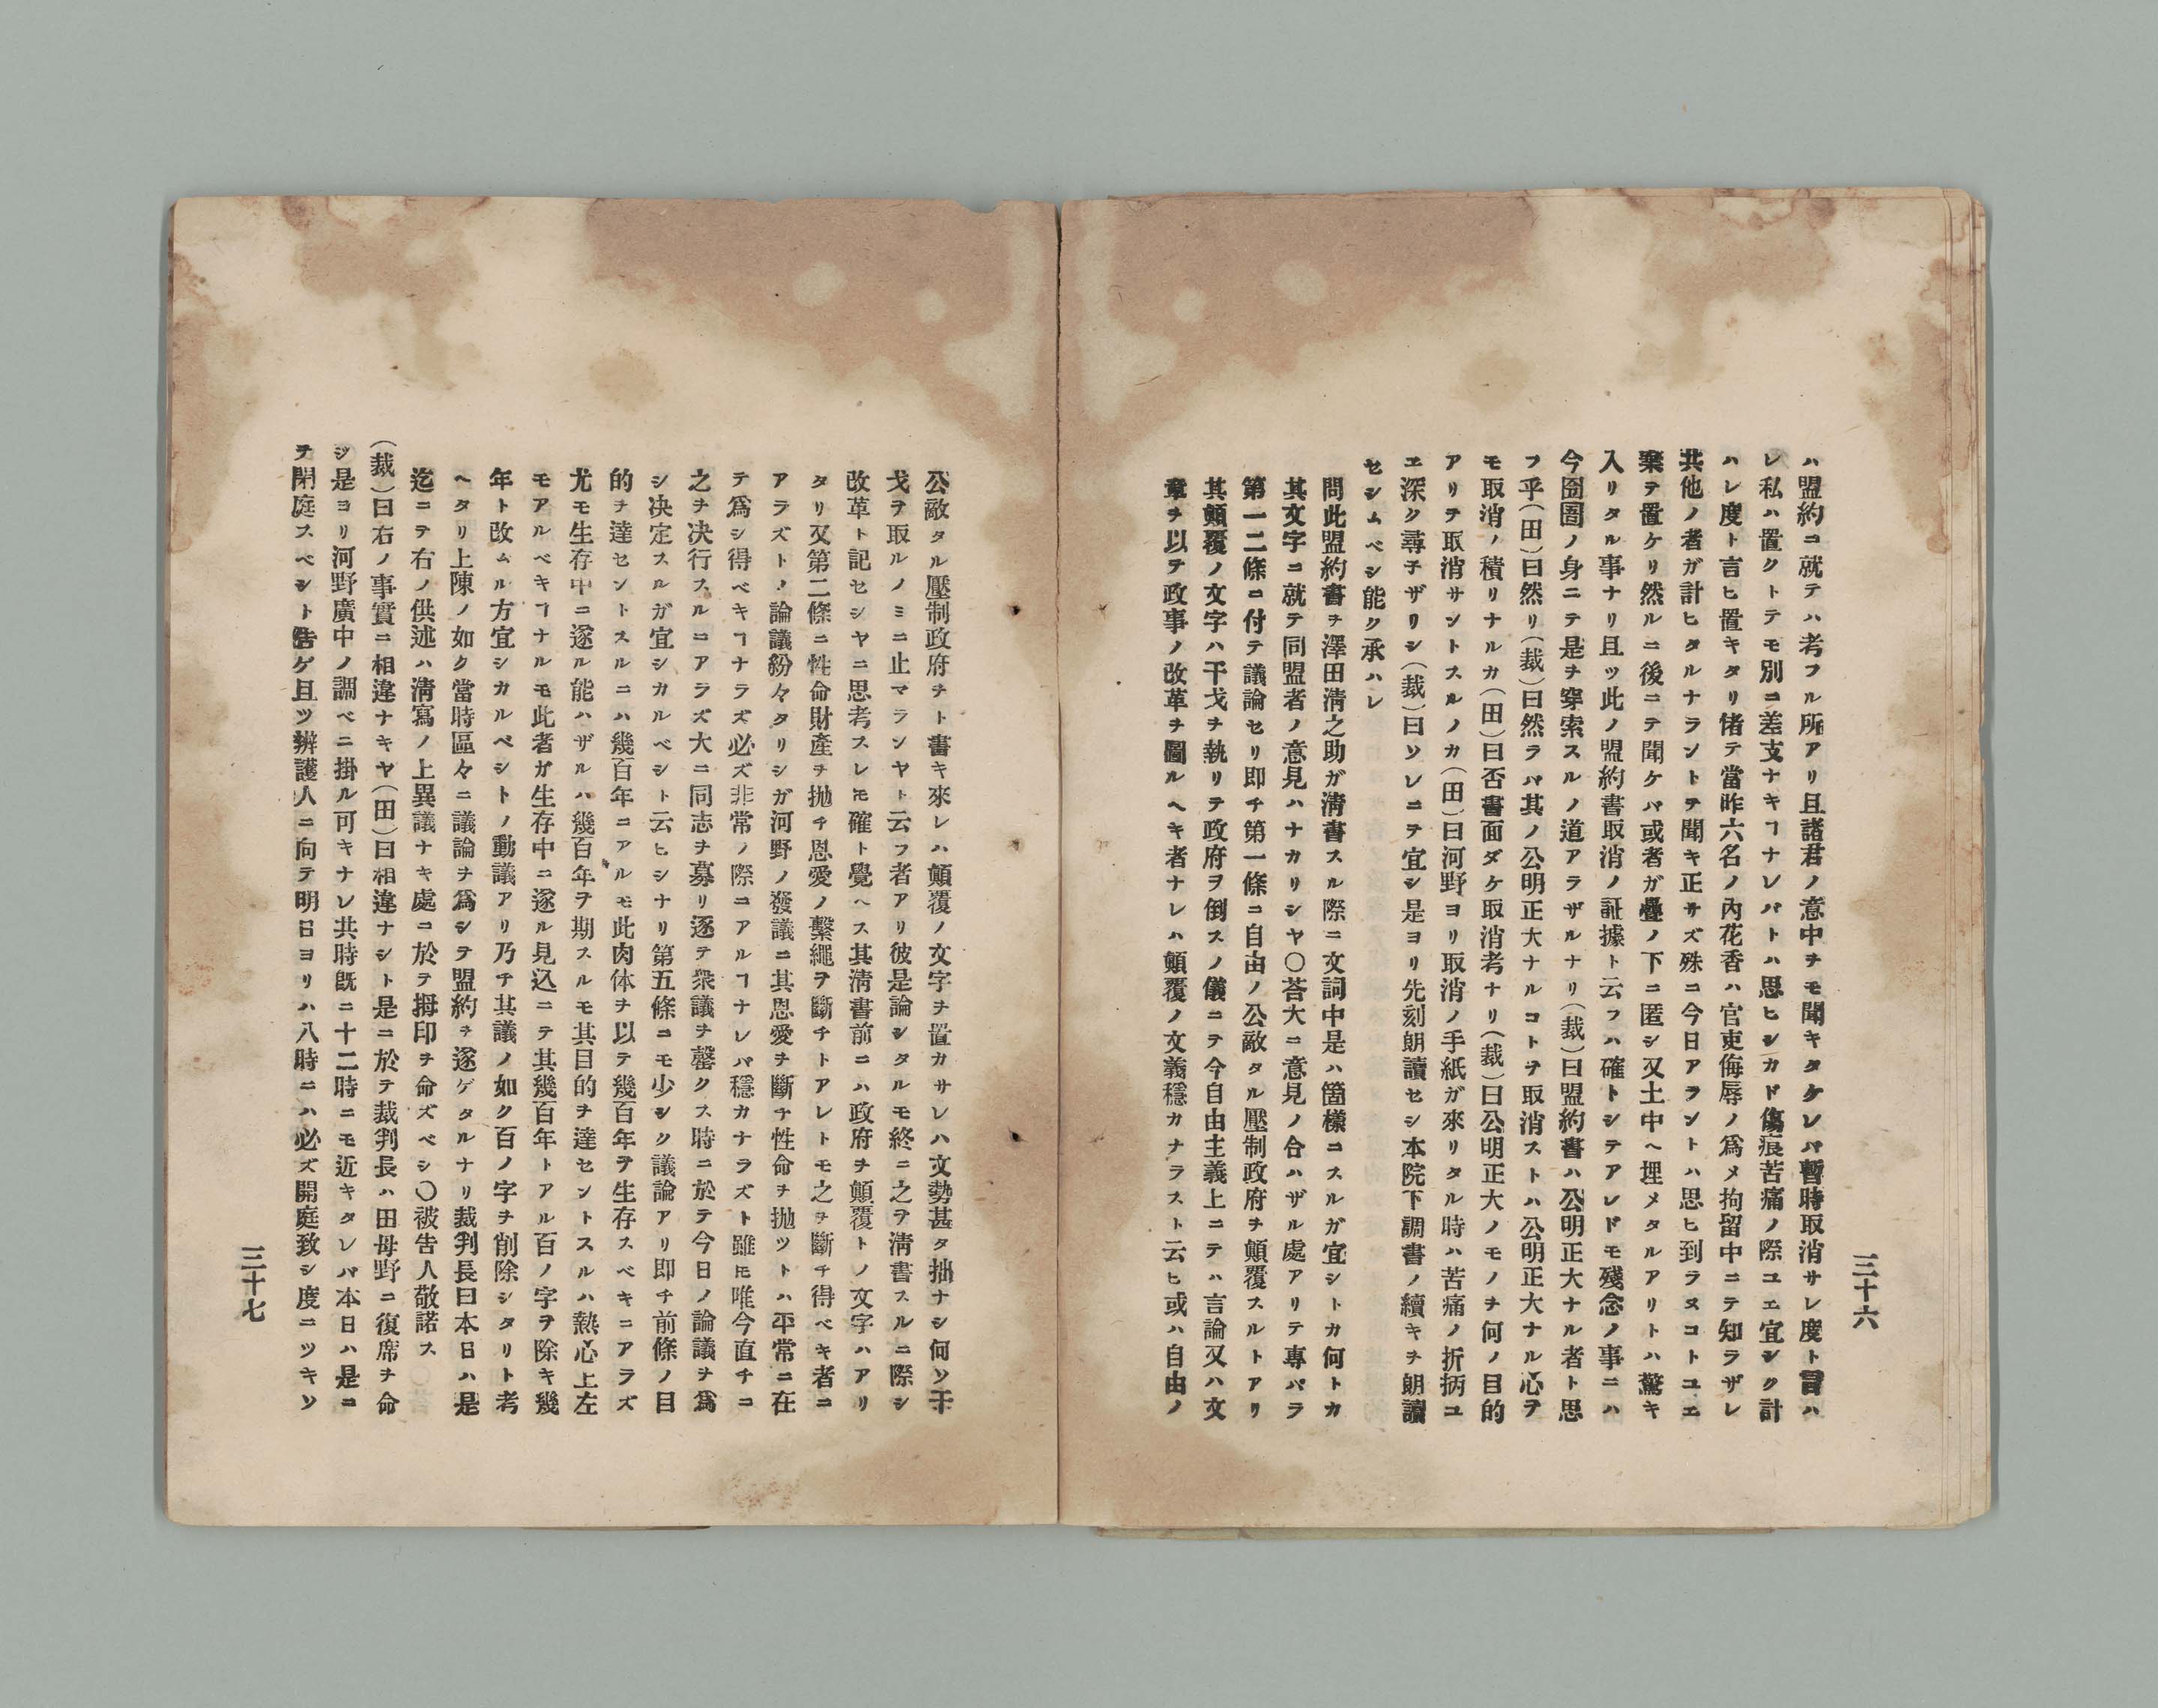 ハ盟約ニ就テハ考フル所アリ且諸君ノ意中チモ聞キタケレバ暫時取消サレ度ト言ハ
レ私ハ置クトテモ別ニ差支ナキヿナレバトハ思ヒシカド傷痕苦痛ノ際ユエ宜シク計
ハレ度ト言ヒ置キタリ偖テ當昨六名ノ內花香ハ官吏侮辱ノ爲メ拘留中ニテ知ラザレ
共他ノ者ガ計ヒタルナラントテ聞キ正サズ殊ニ今日アラントハ思ヒ到ラヌコトユエ
棄テ置ケリ然ルニ後ニテ聞ケバ或者ガ疊ノ下ニ匿シ又土中ヘ埋メタルアリトハ驚キ
入リタル事ナリ且ツ此ノ盟約書取消ノ証據ト云フハ確トシテアレドモ殘念ノ事ニハ
今囹圄ノ身ニテ是チ穿索スルノ道アラザルナリ(裁)曰盟約書ハ公明正大ナル者ト思
フ乎(田)曰然リ(裁)曰然ラバ其ノ公明正大ナルコトヲ取消ストハ公明正大ナル心ヲ
モ取消ノ積リナルカ(田)曰否書面ダケ取消考ナリ(裁)曰公明正大ノモノチ何ノ目的
アリテ取消サントスルノカ(田)曰河野ヨリ取消ノ手紙ガ來リタル時ハ苦痛ノ折柄ユ
エ深ク尋子ザリシ(裁)曰ソレニテ宜シ是ヨリ先刻朗讀セシ本院下調書ノ續キチ朗讀
セシムベシ能ク承ハレ
問此盟約書ヲ澤田淸之助ガ淸書スル際ニ文詞中是ハ箇樣ニスルガ宜シトカ何トカ
其文字ニ就テ同盟者ノ意見ハナカリシヤ〇荅大ニ意見ノ合ハザル處アリテ專パラ
第一二條ニ付テ議論セリ即チ第一條ニ自由ノ公敵タル壓制政府チ顛覆スルトアリ
其顛覆ノ文字ハ干戈ヲ執リテ政府ヲ倒スノ儀ニテ今自由主義上ニテハ言論又ハ文
章チ以テ政事ノ改革チ圖ルヘキ者ナレハ顛覆ノ文義穩カナラスト云ヒ或ハ自由ノ
三十六
公敵タル壓制政府チト書キ來レハ顛覆ノ文字ヲ置カサレハ文勢甚タ拙ナシ何ソ干
戈ヲ取ルノミニ止マランヤト云フ者アリ彼是論シタルモ終ニ之ヲ淸書スルニ際シ
改革ト記セシヤニ思考スレ𪜈確ト覺ヘス其淸書前ニハ政府チ顛覆トノ文字ハアリ
タリ又第二條ニ性命財產チ抛チ恩愛ノ繫繩ヲ斷チトアレトモ之ヲ斷チ得ベキ者ニ
アラズトノ論議紛々タリシガ河野ノ發議ニ其恩愛ヲ斷チ性命チ抛ツトハ平常ニ在
テ爲シ得ベキヿナラズ必ズ非常ノ際ニアルヿナレバ穩カナラズト雖𪜈唯今直チニ
之チ決行スルニアラズ大ニ同志ヲ募リ逐テ衆議ヲ罄クス時ニ於テ今日ノ論議ヲ爲
シ決定スルガ宜シカルベシト云ヒシナリ第五條ニモ少シク議論アリ即チ前條ノ目
的チ達セントスルニハ幾百年ニアルモ此肉体チ以テ幾百年ヲ生存スベキニアラズ
尤モ生存中ニ遂ル能ハザルハ幾百年ヲ期スルモ其目的ヲ達セントスルハ熱心上左
モアルベキヿナルモ此者ガ生存中ニ遂ル見込ニテ其幾百年トアル百ノ字ヲ除キ幾
年ト改ムル方宜シカルベシトノ動議アリ乃チ其議ノ如ク百ノ字チ削除シタリト考
ヘタリ上陳ノ如ク當時區々ニ議論チ爲シテ盟約ヲ遂ゲタルナリ裁判長曰本日ハ是
迄ニテ右ノ供述ハ淸寫ノ上異議ナキ處ニ於テ拇印ヲ命ズベシ〇被告人敬諾ス
(裁)曰右ノ事實ニ相違ナキヤ(田)曰相違ナシト是ニ於テ裁判長ハ田母野ニ復席チ命
ジ是ヨリ河野廣中ノ調ベニ掛ル可キナレ共時既ニ十二時ニモ近キタレバ本日ハ是ニ
テ閉庭スベシト告ゲ且ツ辨護人ニ向テ明日ヨリハ八時ニハ必ズ開庭致シ度ニツキソ
三十七